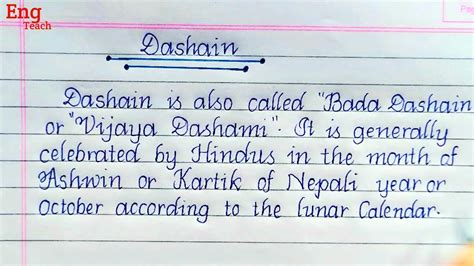 Eng
Teach
Pag
Dashain
Dashain is also called "Bada Dashain
or "Vijaya Dashami". It is generally
celebrated by Hindus in the month of
Ashwin or Kartik of Nepali year or
October according to the lunar Calendar.